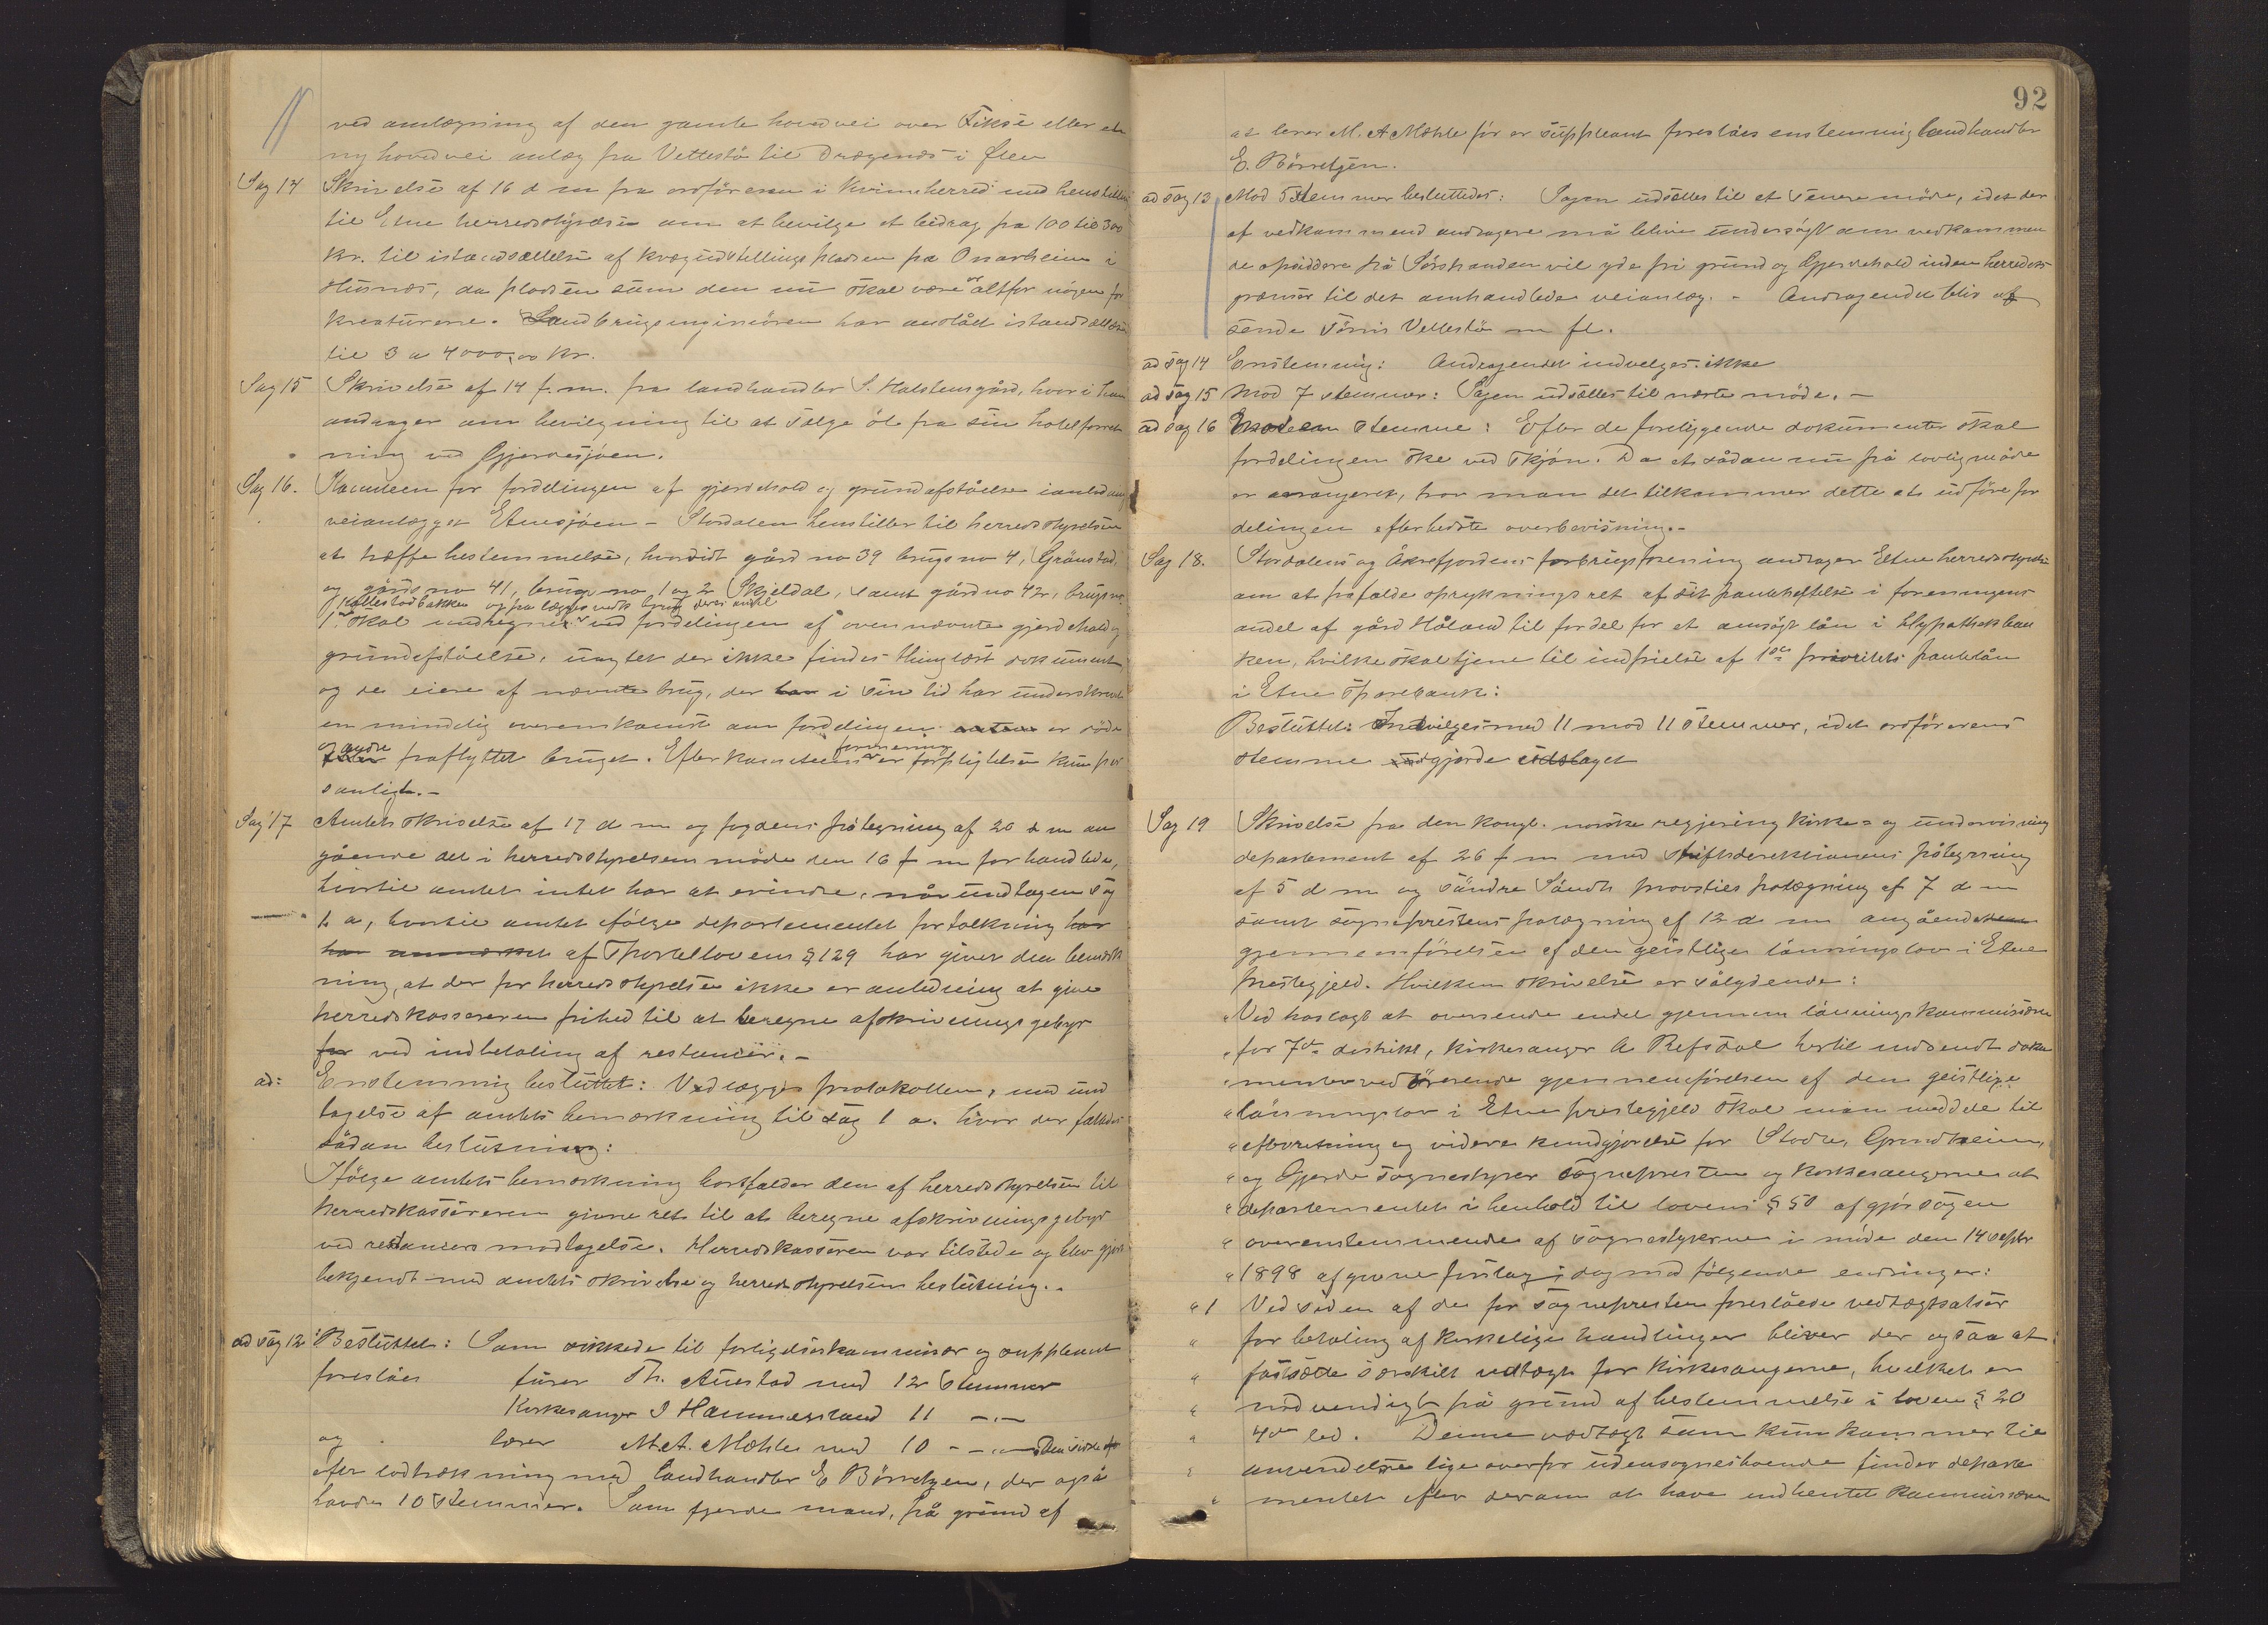 ved omlægning af den gamle hovedvei over Fikse eller en
ny hovedvei anlæg fra Vettestø til Drægenes i Ølen
Sag 14 Skrivelse af 16 d m fra ordføreren i Kvinnherred med henstillen
til Etne herredsstyrelse om at bevilge et bidrag fra 100 til 300
kr. til istandsættelse af kvægudstillingspladsen på Onarheim i
Husnæs, da pladsen som den nu skal være altfor nögen for
kreaturene. Landbrugsingeniören har anslået istandsættelsen
til 3 a 4000,00 kr.
Sag 15 Skrivelse af 14 f. m. fra landhandler S. Halstensgård, hvori han
andrager om bevilgning til at sælge öl fra sin hotelforret-
ning ved Gjerdesjøen.
Sag 16. Komiteen for fordelingen af gjerdehold og grundafståelse i anledning
veianlægget Etnesjøen - Stordalen henstiller til herredsstyrelsen
at træffe bestemmelse, hvorvidt gård no 39 brugs no 4, Grönstad,
og gårds no 41, brugs no 1 og 2 Skjeldal, samt gård no 42, brugs no
1 skal undregnes ved fordelingen af ovennævnte gjerdehold og
grundafståelse, uagtet der ikke findes thinglæst dokument
og de eiere af nævnte brug, der har i sin tid har underskrevet
en mindelig overenskomst om fordelingen er döde
og andre fraflyttet bruget. Efter komiteens formening er forpligtelsen kun per
sonlig. -
Sag 17 Amtets skrivelse af 17 d m og fogdens påtegning af 20 d m an
gående det i herredsstyrelsens möde den 16 f m forhandlede,
hvortil amtet intet har at erindre, når undtagen sag
1 a, hvortil amtet ifølge departementets fortolkning har
af Sportellovens § 129 har givet den bemærk
ning, at der for herredsstyrelsen ikke er anledning at give
herredskassereren frihed til at beregne afskrivningsgebyr
for ved indbetaling af restancer. -
ad: Enstemmig besluttet: Vedlægges protokollen, med und
tagelse af amtets bemærkning til sag 1 a. hvor der fattedes
sådan beslutning:
Ifölge amtets bemærkning bortfalder den af herredsstyrelsen til
herredskassereren givne ret til at beregne afskrivningsgebyr
ved restancers modtagelse. Herredskasseren var tilstede og blev gjort
bekjendt med amtets skrivelse og herredsstyrelsens beslutning. -
ad sag 12 Besluttet: Som vikkede til forligelseskommissær og suppleant
foreslåes furer Th. Auestad med 12 stemmer
Kirkesanger I Hammersland 11 -"-
og lærer M. A. Mæhle med 10 -"- Den sidste
efter lodtrækning med landhandler E Börretzen, der også
havde 10 stemmer. Som fjerde mand, på grund af
92
at lærer M. A Mæhle för er suppleant foreslåes enstemmig landhandler
E. Börretzen.
ad sag 13 Mod 5 stemmer besluttedes: Sagen udsættes til et senere möde, idet der
af vedkommend andragere må blive undersögt om vedkommen
de opsiddere på Sörstranden vil yde fri grund og Gjerdehold inden herredets
grænser til det omhandlede veianlæg. - Andragendet blir af
sende Tönis Vettestø m fl.
ad sag 14 Enstemmig: Andragendet indvelges ikke
ad sag 15 Mod 7 stemmer: Sagen udsættes til næste möde. -
ad sag 16 Mod en stemme: Efter de foreliggende dokumenter skal
fordelingen ske ved skjön. Da et sådan nu på lovlig måde
er arrangeret, tror man det tilkommer dette at udföre for
delingen efter bedste overbevisning. -
Sag 18. Stordalens og Åkrefjordens forbrugsforening andrager Etne herredsstyrelse
om at frafalde oprykningsret af sit pantheftelse i foreningens
andel af gård Håland til fordel for et ansögt lån i Hypothekban
ken, hvilke skal tjene til indfrielse af 1ste prioritets pantelån
i Etne sparebank:
Besluttet: Indvilges med 11 mod 11 stemmer, idet ordförerens
stemme udgjorde udslaget
Sag 19 Skrivelse fra den kongl. norske regjering kirke- og undervisning
departement af 26 f m med Stiftsdirektionens påtegning
af 5 d m og Söndre Söndh provsties påtægning af 7 d m
samt sogneprestens påtægning af 12 d m angående
gjennemförelsen af den geistlige lönningslov i Etne
prestegjeld. Hvilken skrivelse er sålydende:
"Ved hoslagt at oversende endel gjennem lönningskommissionen
"for 7de distrikt, kirkesanger A Refsdal hertil indsendt doku
"menter vedrörende gjennemförelsen af den geistlige
"lönningslov i Etne prestegjeld skal man meddele til
"efterretning og videre kundgjørelse for Stodle, Grindheim,
"og Gjerde sognestyrer sognepresten og kirkesangerne at
"departementet i henhold til lovens § 50 afgjör sagen
"overenstemmende af sognestyrerne i möde den 14 septbr
"1898 afgivne forslag idag med følgende endringer:
"1 Ved siden af de for sognepresten foreslåede vedtægtsatser
" for betaling af kirkelige handlinger bliver der ogsaa at
" fastsætte særskilt vedtægt for kirkesangerne, hvilket er
" nødvendigt på grund af bestemmelse i loven § 20
" 4de led. Denne vedtægt som kun kommer til
" anvendelse ligeoverfor udensognesboende finder departe
" mentet efter derom at have indhentet kommissionen